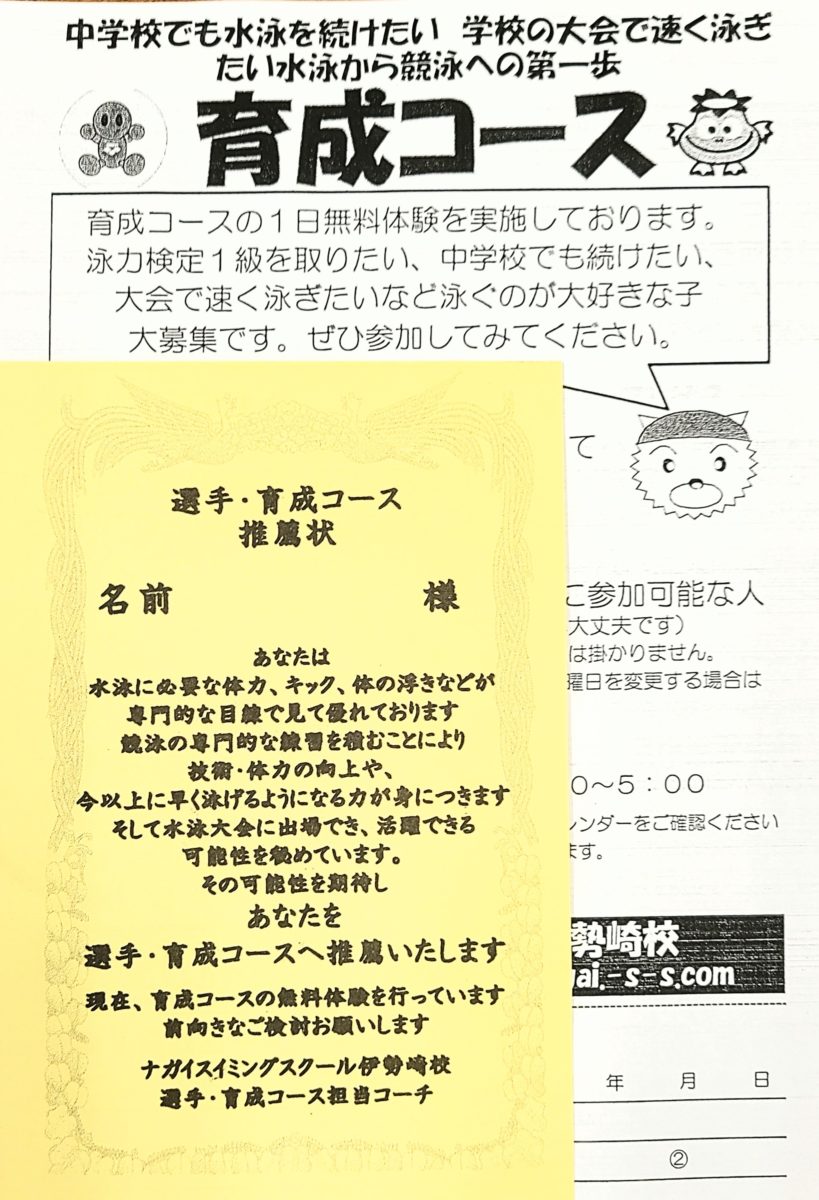 中学校でも水泳を続けたい 学校の大会で速く泳ぎ
たい水泳から競泳への第一歩
育成コース
育成コースの1日無料体験を実施しております。
泳力検定1級を取りたい、中学校でも続けたい、
大会で速く泳ぎたいなど泳ぐのが大好きな子
大募集です。ぜひ参加してみてください。
て
に参加可能な人
大丈夫です）
は掛かりません。
曜日を変更する場合は
0～5：00
レンダーをご確認ください
ます。
勢崎校
ai.-s-s.com
年 月 日
②
選手・育成コース
推薦状
名前 様
あなたは
水泳に必要な体力、キック、体の浮きなどが
専門的な目線で見て優れております
競泳の専門的な練習を積むことにより
技術・体力の向上や、
今以上に早く泳げるようになる力が身につきます
そして水泳大会に出場でき、活躍できる
可能性を秘めています。
その可能性を期待し
あなたを
選手・育成コースへ推薦いたします
現在、育成コースの無料体験を行っています
前向きなご検討お願いします
ナガイスイミングスクール伊勢崎校
選手・育成コース担当コーチ